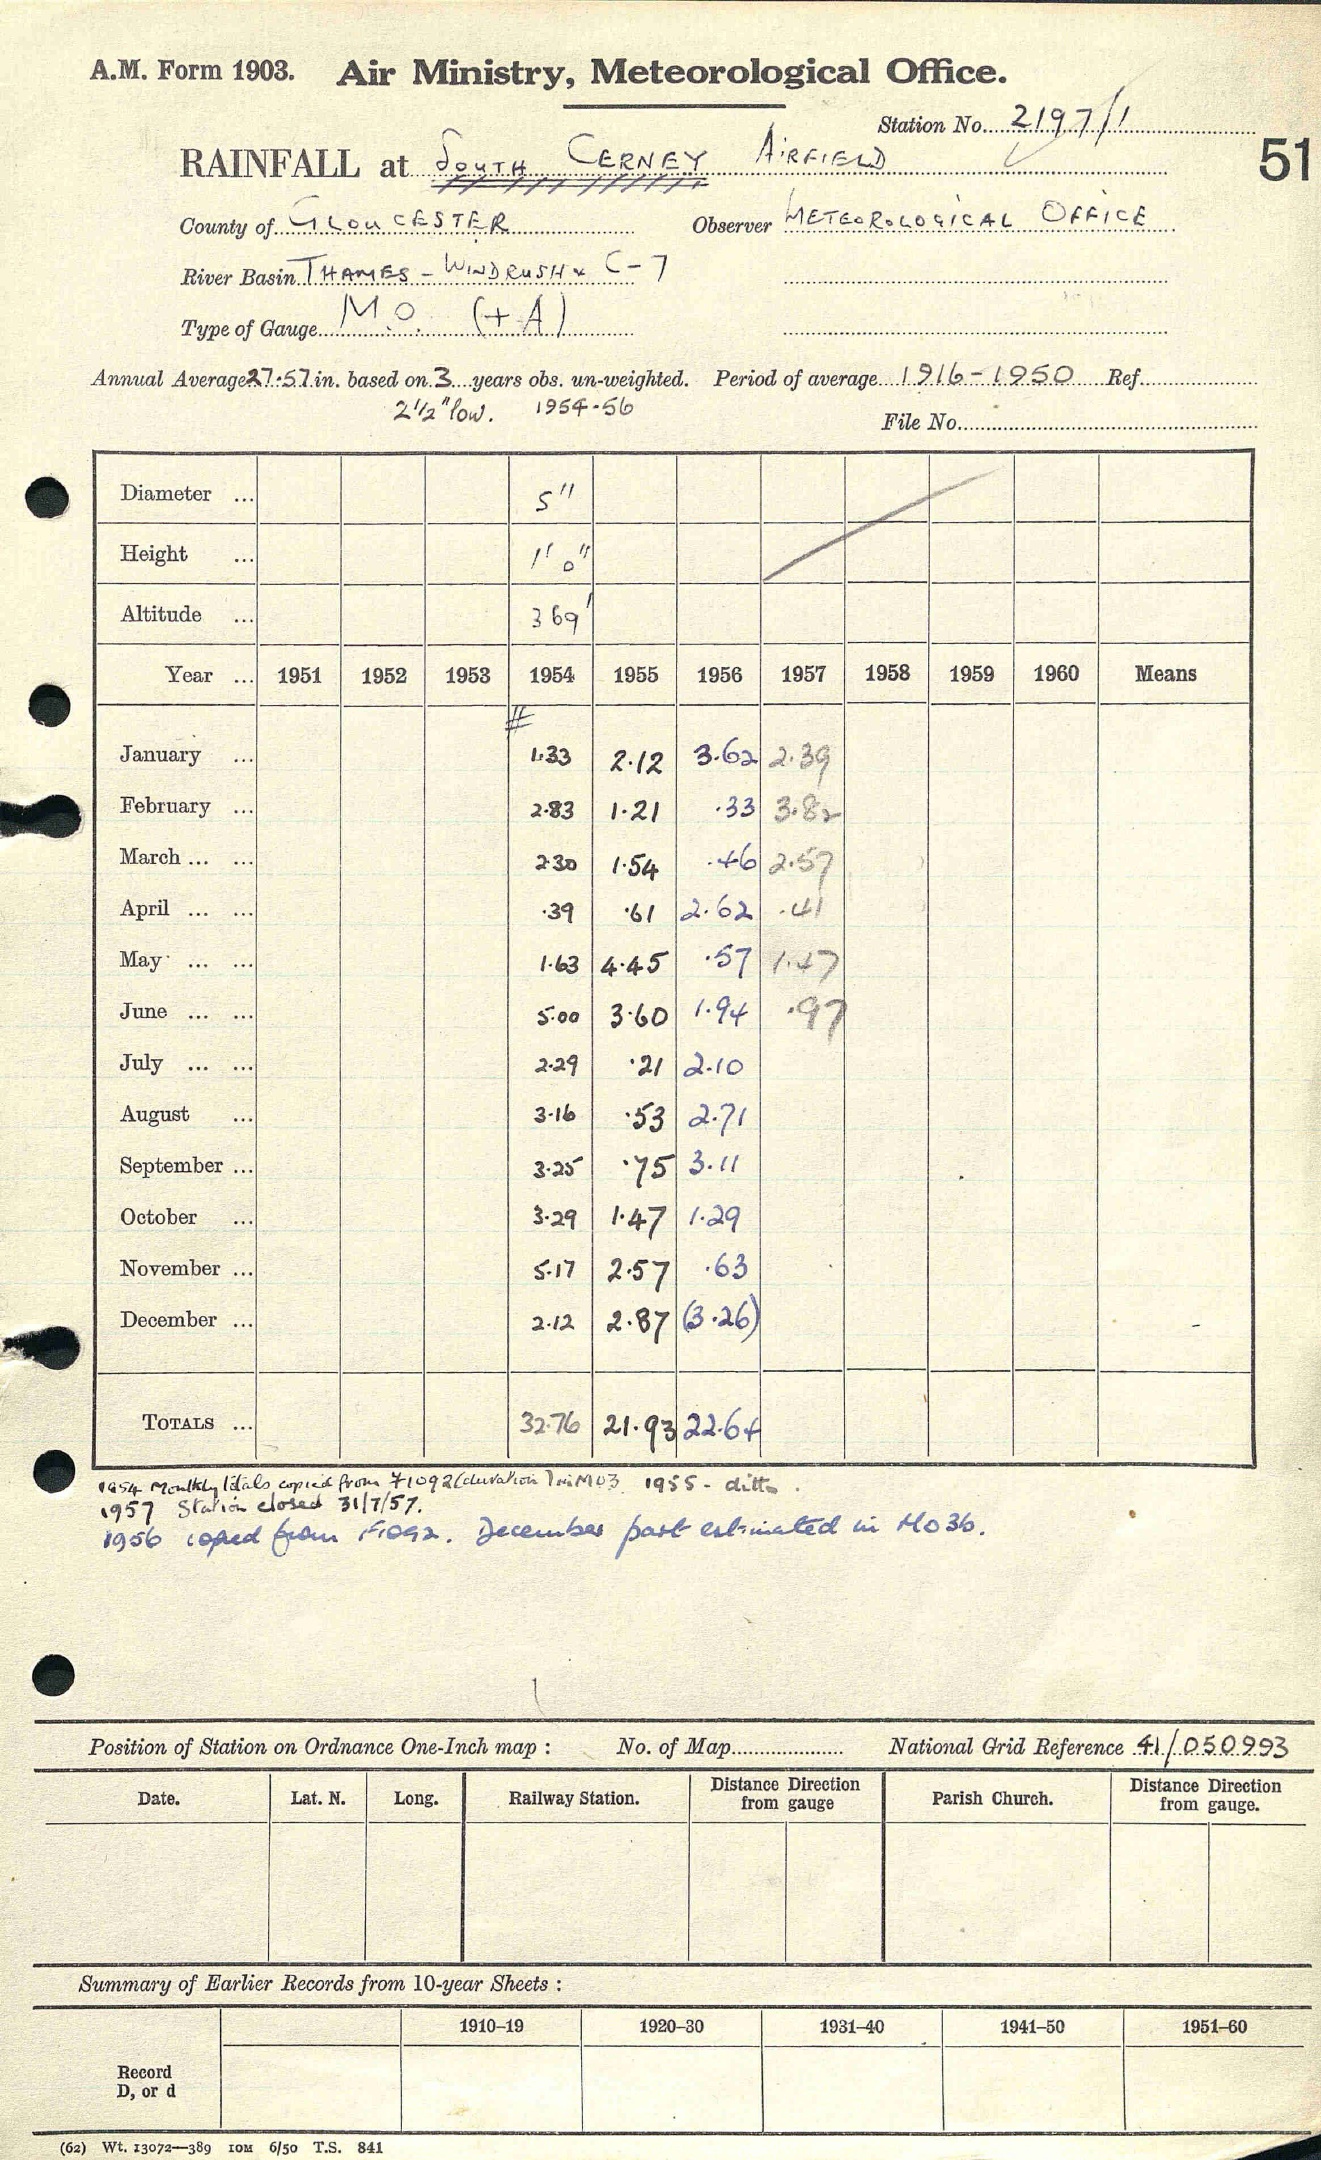 A.M. Form 1903. Air Ministry, Meteorological Office.
Station No. 2197/1
RAINFALL at SOUTH CERNEY AIRFIELD
51
County of GLOUCESTER Observer METEOROLOGICAL OFFICE
River Basin THAMES - WINDRUSH & C-7
Type of Gauge M.O. (+A)
Annual Average 27.57 in. based on 3 years obs. un-weighted. Period of average 1916-1950 Ref.
2½" low. 1954-56
File No.
Diameter ... 5"
Height ... 1' 0"
Altitude ... 369'
Year ... 1951 1952 1953 1954 1955 1956 1957 1958 1959 1960 Means
#
January ... 1.33 2.12 3.62 2.39
February ... 2.83 1.21 .33 3.82
March ... ... 2.30 1.54 .46 2.57
April ... ... .39 .61 2.62 .41
May ... ... 1.63 4.45 .57 1.47
June ... ... 5.00 3.60 1.94 .97
July ... ... 2.29 .21 2.10
August ... 3.16 .53 2.71
September ... 3.25 .75 3.11
October ... 3.29 1.47 1.29
November ... 5.17 2.57 .63
December ... 2.12 2.87 (3.26)
TOTALS ... 32.76 21.93 22.64
1954 Monthly totals copied from F1092 (duration) in MO3 1955 - ditto.
1957 Station closed 31/7/57.
1956 copied from F1092. December part estimated in MO3b.
Position of Station on Ordnance One-Inch map : No. of Map National Grid Reference 41/050993
Date. Lat. N. Long. Railway Station. Distance Direction from gauge Parish Church. Distance Direction from gauge.
Summary of Earlier Records from 10-year Sheets :
1910–19 1920–30 1931–40 1941–50 1951–60
Record
D, or d
(62) Wt. 13072—389 10M 6/50 T.S. 841